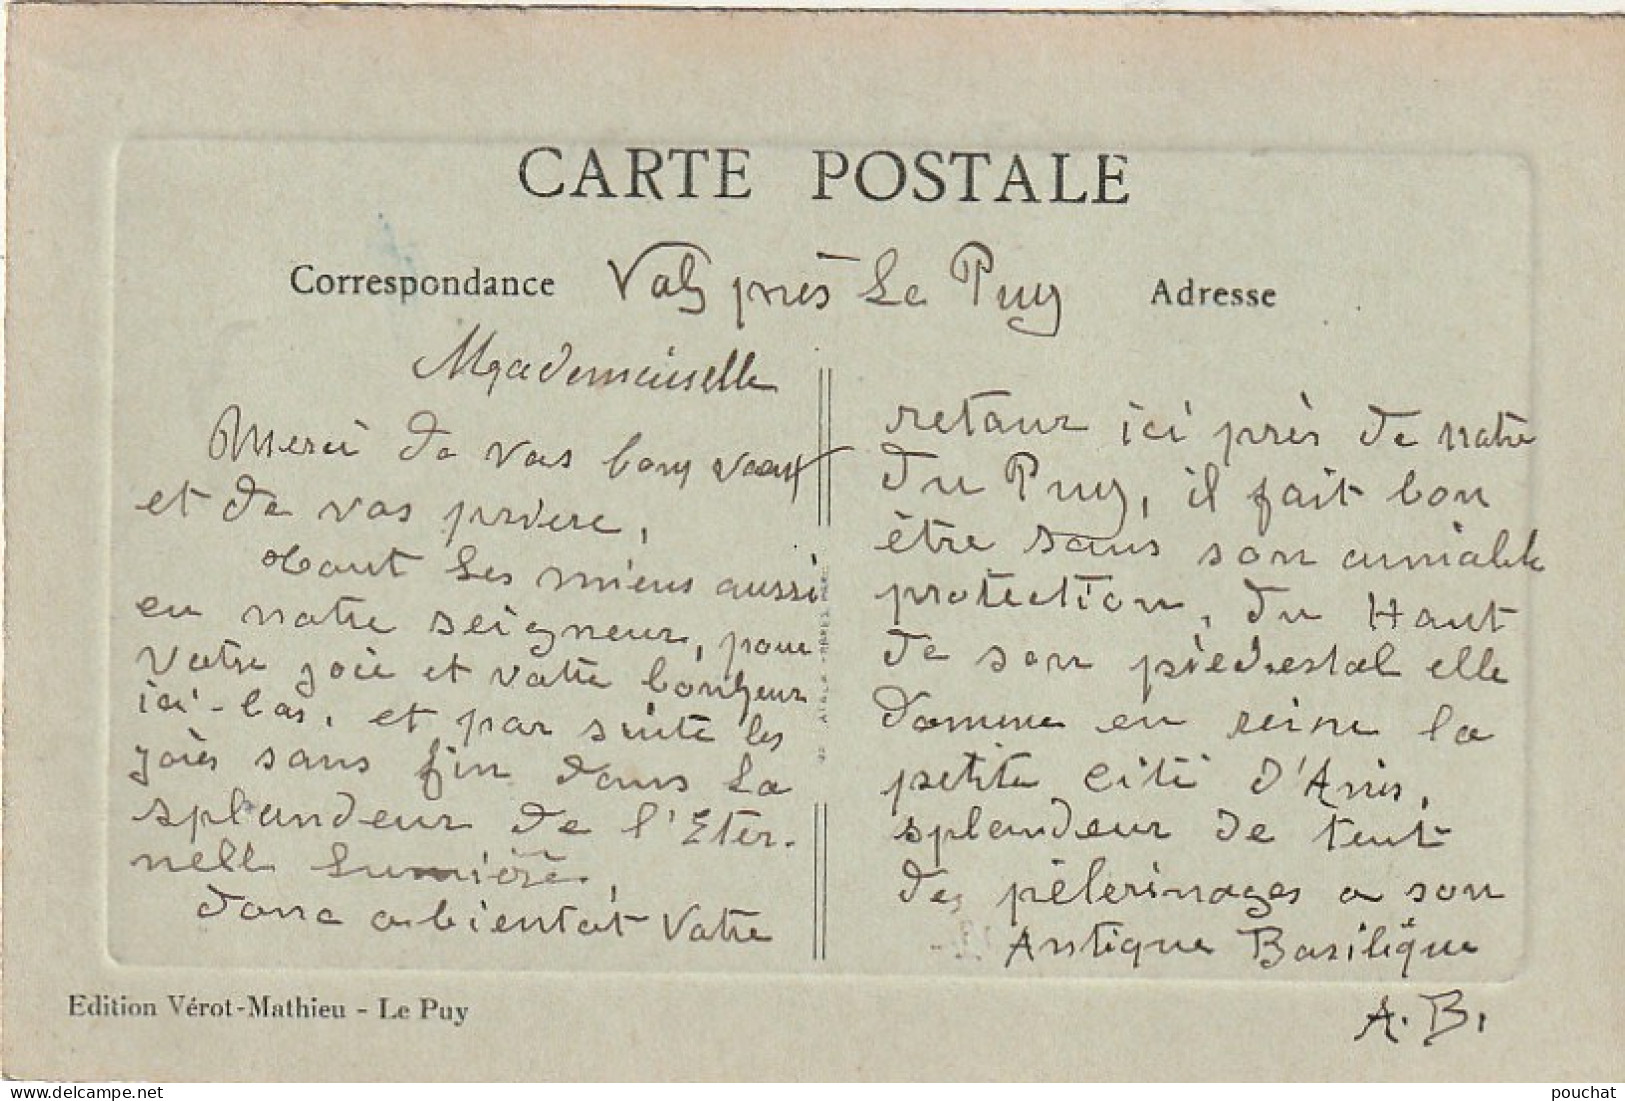 CARTE POSTALE
Correspondance
Adresse
Vals près Le Puy
Mademoiselle
Merci de vos bons voeux
et de vos priere,
tout les miens aussi
en notre seigneur, pour
Votre joie et votre bonheur
ici-bas, et par suite les
joies sans fin dans la
splendeur de l'Eter-
nell Lumière,
donc a bientot Votre
retour ici près de notre
du Puy, il fait bon
être sous son aimable
protection, du Haut
de son piédestal elle
domine en reine la
petite Cité d'Anis,
splendeur de tout
des pèlerinages a son
Antique Basilique
A. B.
Edition Vérot-Mathieu - Le Puy
pouchat